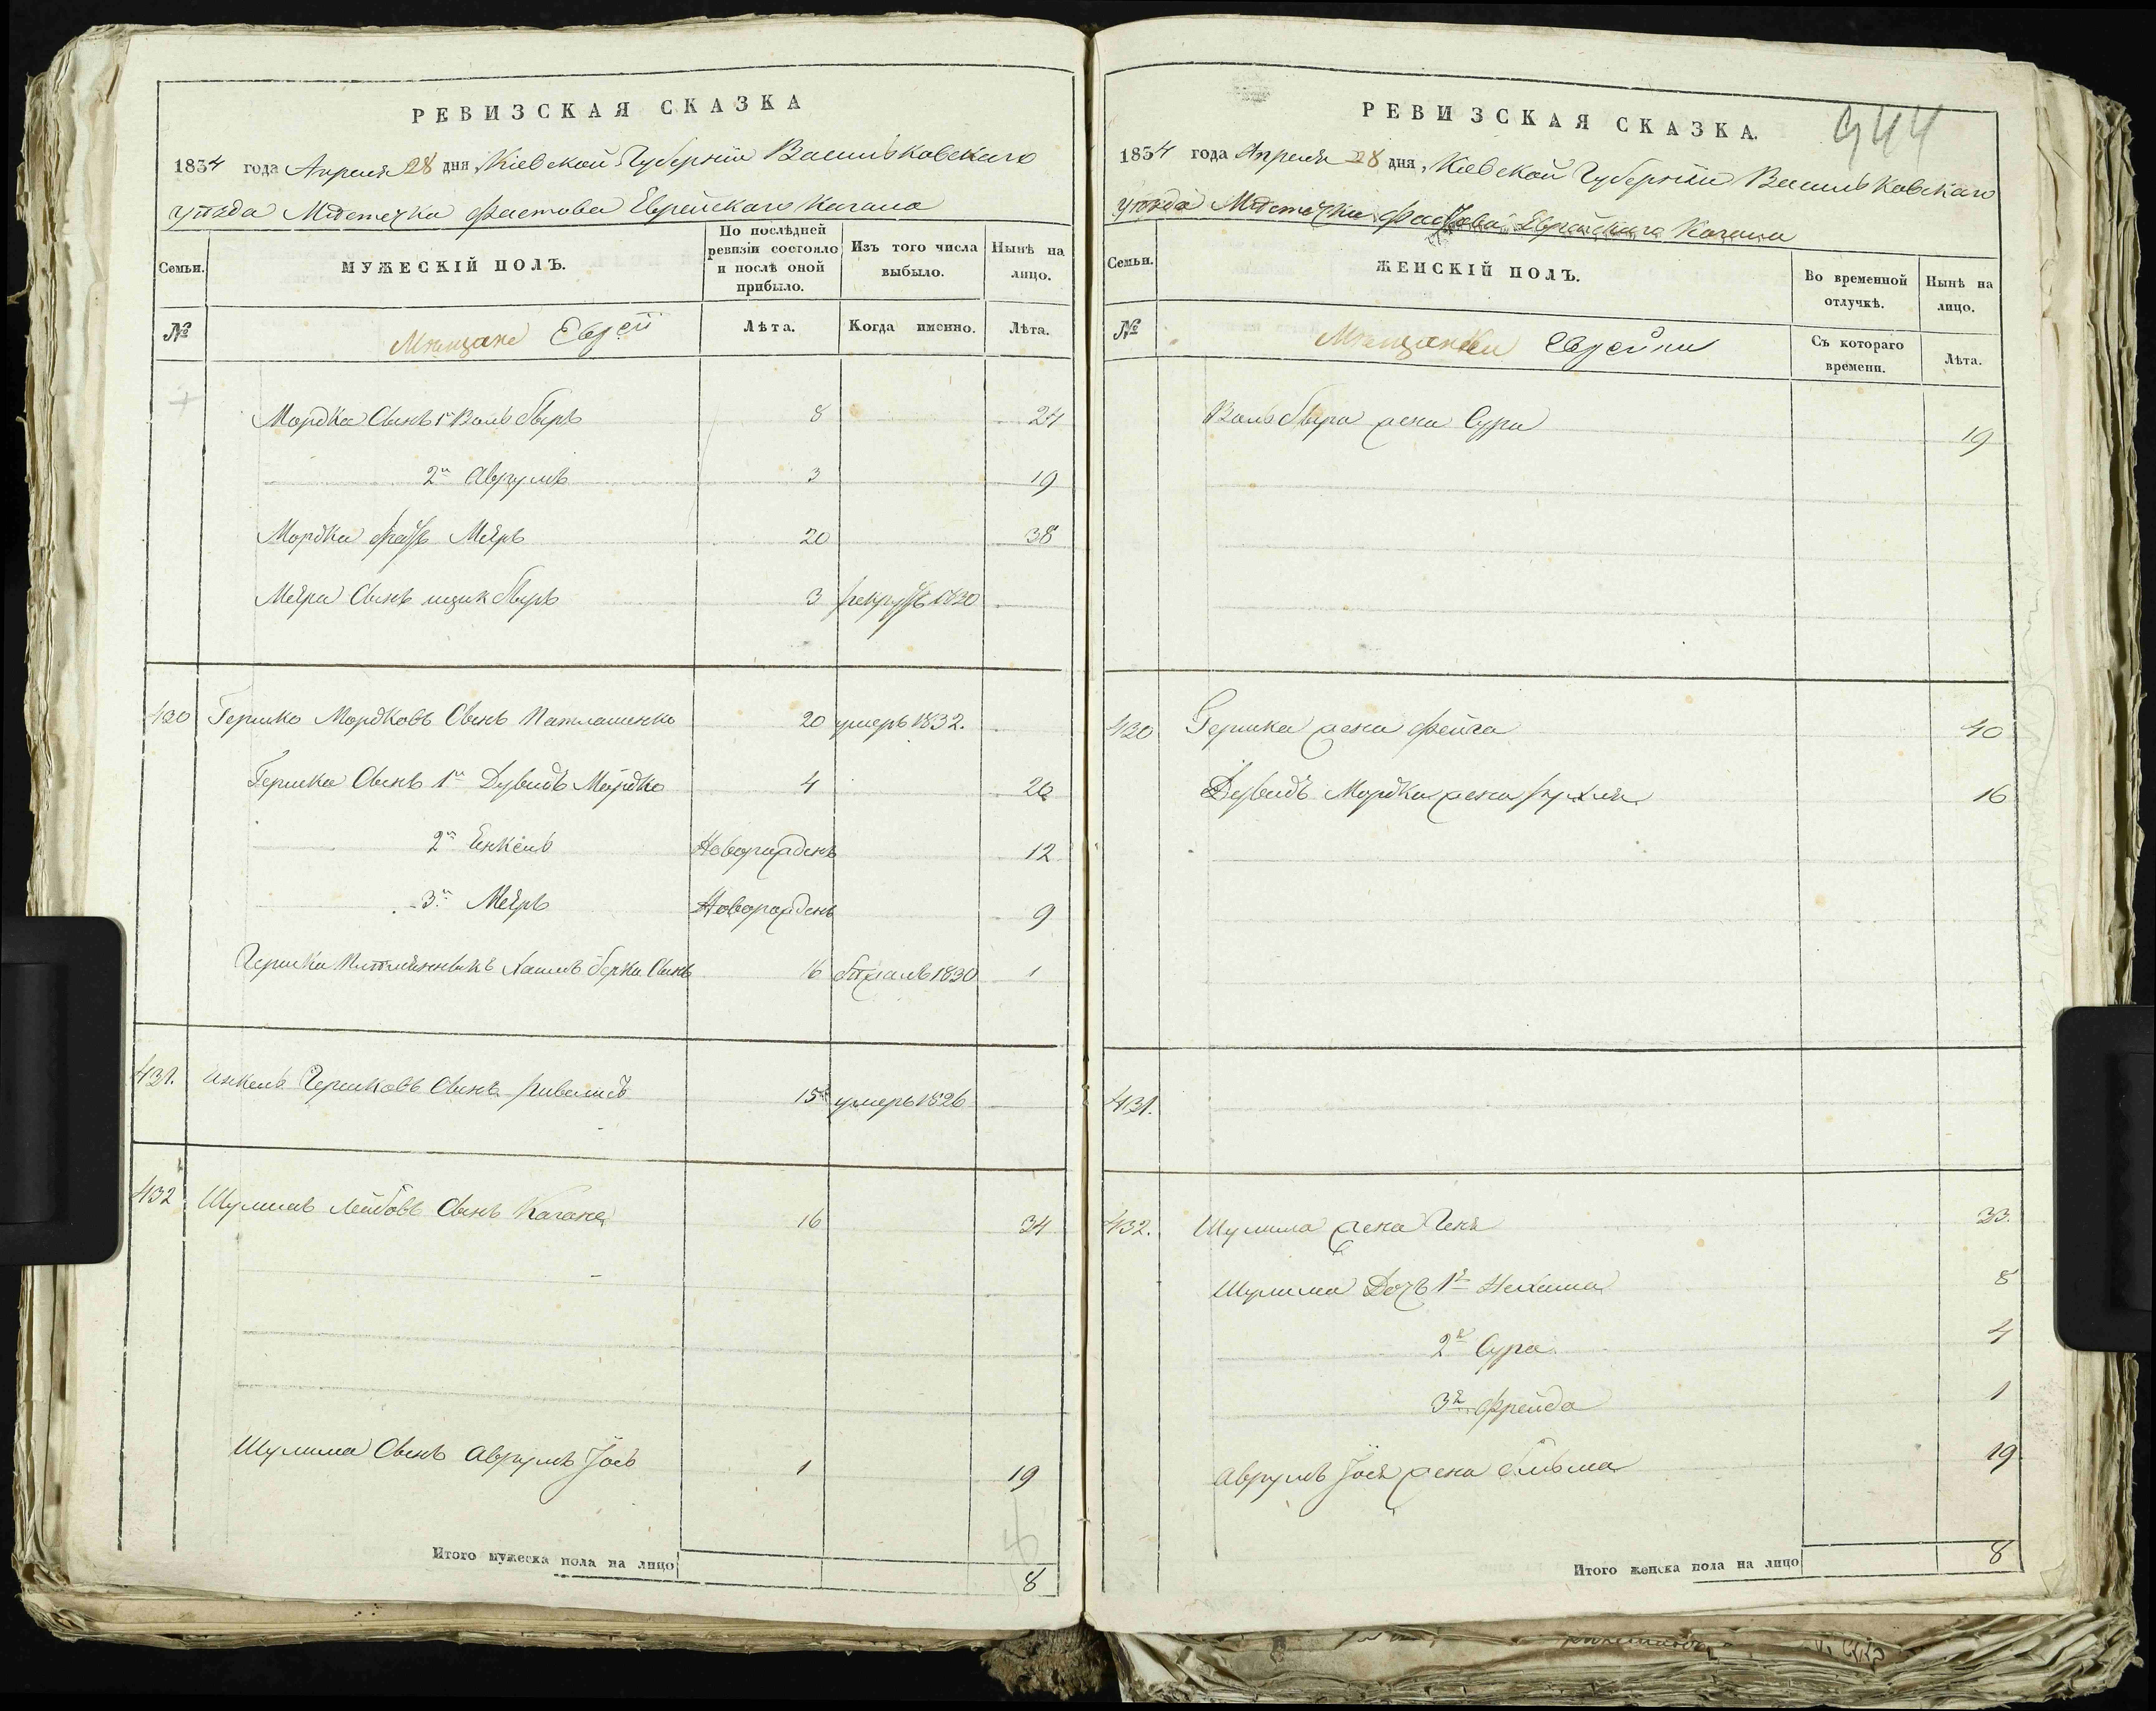 РЕВИЗСКАЯ СКАЗКА
1834 года Апреля 28 дня, Кіевской Губерніи Васильковскаго
уѣзда Мѣстечка Фастова Еврейскаго Кагала
Семьи.
МУЖЕСКІЙ ПОЛЪ.
По послѣдней ревизіи состояло и послѣ оной прибыло.
Изъ того числа выбыло.
Нынѣ на лицо.
№
Мѣщане Евреи
Лѣта.
Когда именно.
Лѣта.
Мордка Сынъ 1й Вольфъ Беръ 8 24
2й Аврумъ 3 19
Мордки братъ Меѣръ 20 38
Меѣра Сынъ Ицик Беръ 3 рекрутъ 1830
430 Гершко Мордковъ Сынъ Патлашенко 20 умеръ 1832.
Гершка Сынъ 1й Дувидъ Мордко 4 20
2й Енкель Новорожденъ 12
3й Меѣръ Новорожденъ 9
Гершка Племянникъ Хаимъ Берка Сынъ 16 бѣжалъ 1830 1
431. Инкель Гершковъ Сынъ 15 умеръ 1826
432 Шулимъ Лейбовъ Сынъ Кагане 16 34
Шулима Сынъ Аврумъ Іось 1 19
Итого мужеска пола на лицо 8
РЕВИЗСКАЯ СКАЗКА.
944
1834 года Апреля 28 дня, Кіевской Губерніи Васильковскаго
уѣзда Мѣстечка Фастова Еврейскаго Кагала
Семьи.
ЖЕНСКІЙ ПОЛЪ.
Во временной отлучкѣ.
Нынѣ на лицо.
№
Мѣщанки Еврейки
Съ котораго времени.
Лѣта.
Вольф Бера жена Сура 19
430 Гершка жена Фейга 40
Дувидъ Мордка жена Рухля 16
431.
432. Шулима жена Геня 33.
Шулима Дочь 1я Нехама 8
2я Сура 4
3я Фрейда 1
Аврумъ Іося жена 19
Итого женска пола на лицо 8